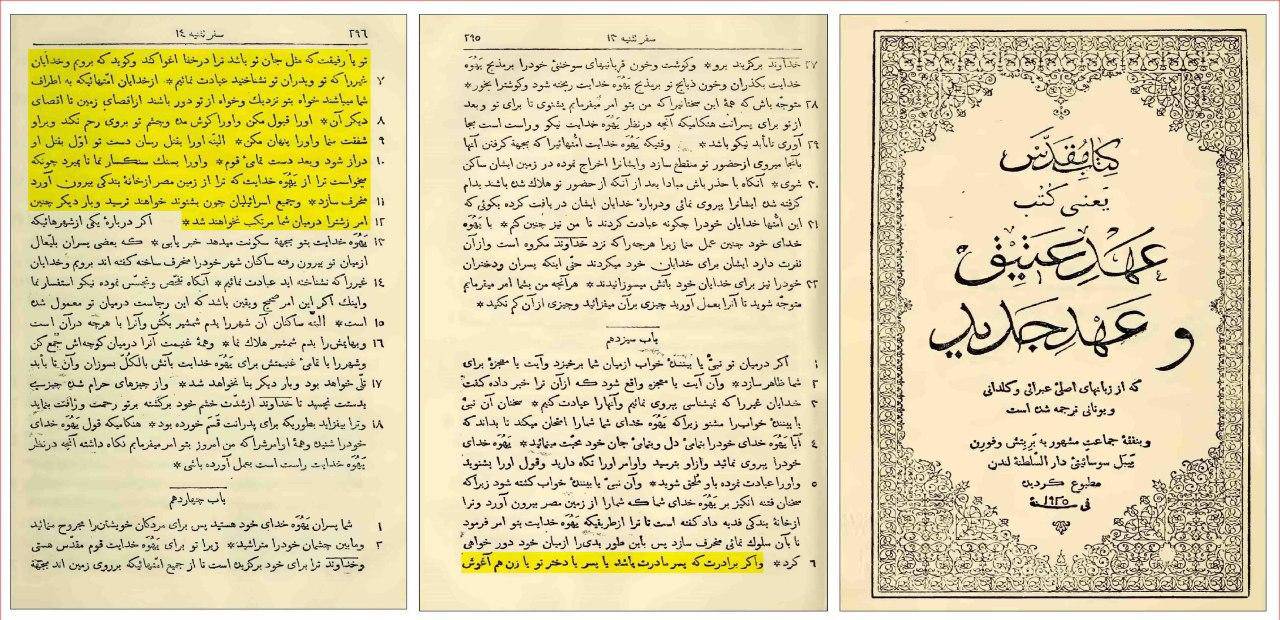 کتاب مقدّس
یعنی کُتب
عهدِ عتیق
و عهدِ جدید
که از زبانهای اصلیٔ عبرانی و کلدانی
و یونانی ترجمه شده است
و بنفقهٔ جماعت مشهور به بریتش و فورن
بیبل سوسائیتیٔ دار السّلطنهٔ لندن
مطبوع گردید
فی سنهٔ ۱۹۲۵
سفر تثنیه ۱۳ ۲۹۵
۲۷ خداوند برگزیند برو * وگوشت وخون قربانیهای سوختنیٔ خودرا بر مذبح یَهُوَه
خدایت بگذران وخون ذبایح تو بر مذبح یَهُوَه خدایت ریخته شود وگوشترا بخور *
۲۸ متوجّه باش که همهٔ این سخنانیرا که من بتو امر میفرمایم بشنوی تا برای تو و بعد
از تو برای پسرانت هنگامیکه آنچه درنظر یَهُوَه خدایت نیکو وراست است بجا
۲۹ آوری تا بابد نیکو باشد * وقتیکه یَهُوَه خدایت امّتهائیرا که بجهة گرفتن آنها
بآنجا میروی ازحضور تو منقطع سازد وایشانرا اخراج نموده در زمین ایشان ساکن
۳۰ شوی * آنگاه با حذر باش مبادا بعد از آنکه از حضور تو هلاک شده باشند بدام
گرفته شده ایشانرا پیروی نمائی ودربارهٔ خدایان ایشان دریافت کرده بگوئی که
۳۱ این امّتها خدایان خودرا چگونه عبادت کردند تا من نیز چنین کنم * با یَهُوَه
خدای خود چنین عمل منما زیرا هرچه را که نزد خداوند مکروه است وازآن
نفرت دارد ایشان برای خدایان خود میکردند حتّی اینکه پسران ودختران
۳۲ خودرا نیز برای خدایان خود بآتش میسوزانیدند * هرآنچه من بشما امر میفرمایم
متوجّه شوید تا آنرا بعمل آورید چیزی برآن میفزائید وچیزی ازآن کم نکنید *
باب سیزدهم
۱ اگر درمیان تو نبیٔ یا بینندهٔ خواب ازمیان شما برخیزد وآیت یا معجزهٔ برای
۲ شما ظاهر سازد * وآن آیت یا معجزه واقع شود که ازآن ترا خبر داده گفت
۳ خدایان غیررا که نمیشناسی پیروی نمائیم وآنهارا عبادت کنیم * سخنان آن نبیّ
یا بینندهٔ خوابرا مشنو زیرا که یَهُوَه خدای شما شمارا امتحان میکند تا بداند که
۴ آیا یَهُوَه خدای خودرا بتمامیٔ دل وبتمامیٔ جان خود محبّت مینمائید * یَهُوَه خدای
خودرا پیروی نمائید وازاو بترسید واوامر اورا نگاه دارید وقول اورا بشنوید
۵ واورا عبادت نموده باو ملحق شوید * وآن نبیّ یا بینندهٔ خواب کشته شود زیرا که
سخنان فتنه انگیز بر یَهُوَه خدای شما که شمارا از زمین مصر بیرون آورد وترا
ازخانهٔ بندگی فدیه داد گفته است تا ترا ازطریقیکه یَهُوَه خدایت بتو امر فرمود
تا بآن سلوک نمائی منحرف سازد پس باین طور بدیرا ازمیان خود دور خواهی
۶ کرد * واگر برادرت که پسر مادرت باشد یا پسر یا دختر تو یا زن هم آغوش
سفر تثنیه ۱٤ ۲۹۶
تو یا رفیقت که مثل جان تو باشد ترا درخفا اغوا کند وگوید که برویم وخدایان
۷ غیررا که تو وپدران تو نشناختید عبادت نمائیم * ازخدایان امّتهائیکه به اطراف
شما میباشند خواه بتو نزدیک وخواه از تو دور باشند ازاقصای زمین تا اقصای
۸ دیگر آن * اورا قبول مکن واورا گوش مده وچشم تو بروی رحم نکند وبراو
۹ شفقت منما واورا پنهان مکن * البتّه اورا بقتل رسان دست تو اوّل بقتل او
۱۰ دراز شود وبعد دست تمامیٔ قوم * واورا بسنگ سنگسار نما تا بمیرد چونکه
میخواست ترا از یَهُوَه خدایت که ترا از زمین مصر ازخانهٔ بندگی بیرون آورد
۱۱ منحرف سازد * وجمیع اسرائیلیان چون بشنوند خواهند ترسید وبار دیگر چنین
۱۲ امر زشترا درمیان شما مرتکب نخواهند شد * اگر دربارهٔ یکی ازشهرهائیکه
۱۳ یَهُوَه خدایت بتو بجهة سکونت میدهد خبر یابی * که بعضی پسران بلیّعال
ازمیان تو بیرون رفته ساکنان شهر خودرا منحرف ساخته گفته اند برویم وخدایان
۱٤ غیررا که نشناخته اید عبادت نمائیم * آنگاه تفحّص وتجسّس نموده نیکو استفسار نما
واینک اگر این امر صحیح ویقین باشد که این رجاست درمیان تو معمول شده
۱۵ است * البتّه ساکنان آن شهررا بدم شمشیر بکُش وآنرا با هرچه درآن است
۱۶ وبهایمش را بدم شمشیر هلاک نما * وهمهٔ غنیمت آنرا درمیان کوچه‌اش جمع کن
وشهررا با تمامیٔ غنیمتش برای یَهُوَه خدایت بآتش بالکلّ بسوزان وآن تا بابد
۱۷ تلّی خواهد بود وبار دیگر بنا نخواهد شد * واز چیزهای حرام شده چیزی
بدستت نچسپد تا خداوند ازشدّت خشم خود برگشته برتو رحمت ورأفت بنماید
۱۸ وترا بیفزاید بطوریکه برای پدرانت قَسَم خورده بود * هنگامیکه قول یَهُوَه خدای
خودرا شنیده وهمهٔ اوامرشرا که من امروز بتو امر میفرمایم نگاه داشته آنچه درنظر
یَهُوَه خدایت راست است بعمل آورده باشی *
باب چهاردهم
۱ شما پسران یَهُوَه خدای خود هستید پس برای مردگان خویشتنرا مجروح منمائید
۲ ومابین چشمان خودرا متراشید * زیرا تو برای یَهُوَه خدایت قوم مقدّس هستی
وخداوند ترا برای خود برگزیده است تا از جمیع امّتهائیکه برروی زمین اند بجهة